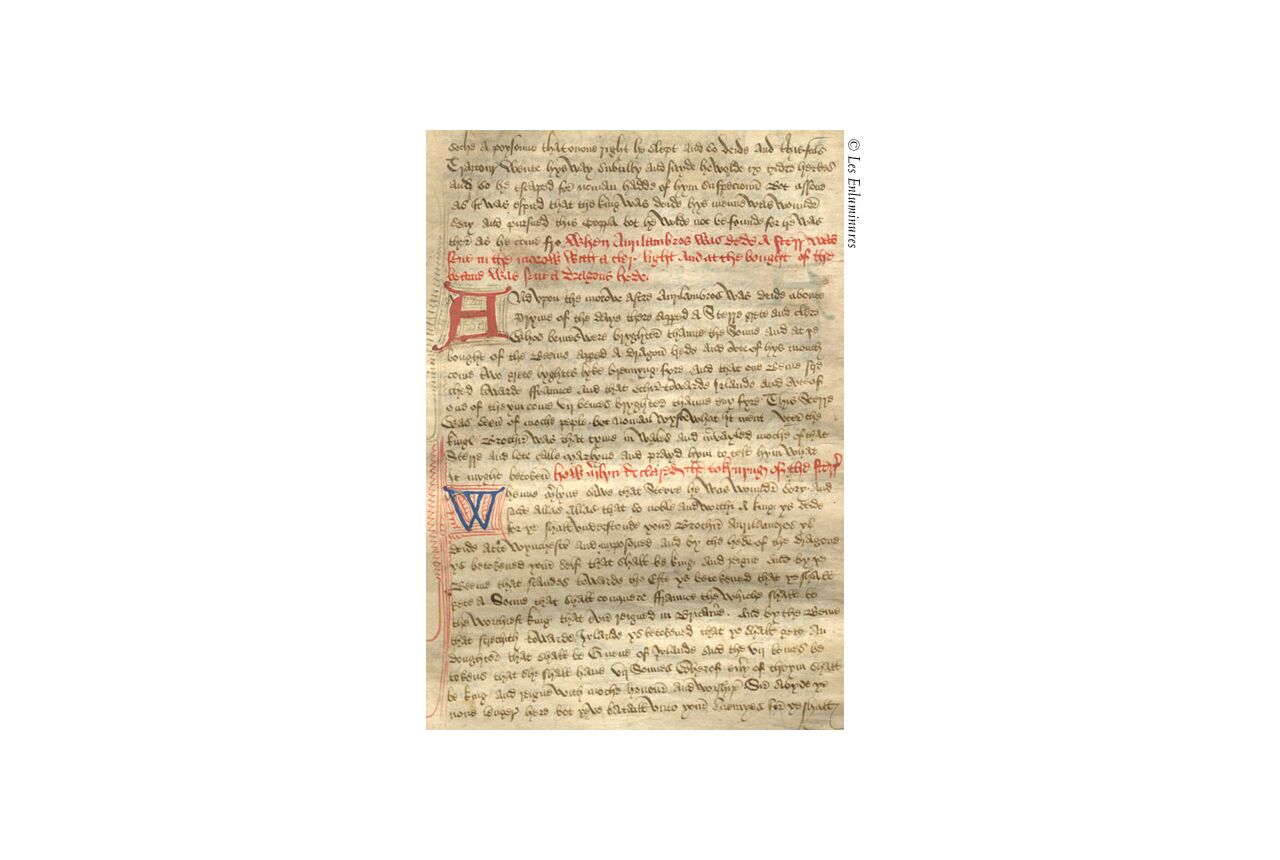 soche a poysonne that onone right he slept and so deide and this fals
Traitour wente hys way subtilly and sayde he wolde
and so he escaped for noman hadde of hym suspecioun Bot assone
as it was espied that the king was deide hys menne was wounder
sory and pursued this Coppa bot he wolde not be founde for he was
ther as he come fro When Aurilambros was dede a sterr was
sene in the morow with a cler light And at the bought of the
beame was sene a Dragons hede.
And upon the morowe aftre Aurilambros was deide aboute
Pryme of the daye there apped a Sterre grete and clere
whos bemes were bryghter thanne the Sonne and at ye
bought of the Beeme apped a dragon hede and oute of hys mouth
come two grete lyghtes lyke brennyng fyre and that one Beme
ched towarde ffraunce and that other towarde Irlande and oute of
one of theym come vii bemes bryghter thanne eny fyre This Sterre
was seen of moche peple bot noman wyste what it ment Uter the
kings Brother was that tyme in Wales and mvayled moche of that
Sterre and lete calle Marlyne and prayd hym to tell hym what
it myght betoken how Mlyn declared the tokynyng of the sterr
Whenne Mlyne sawe that Sterre he was wounder sory and
saide allas allas that so noble and worthi a king ys deide
for ye shall understonde youre Brother Aurilambros ys
deide atte Wynchestre and enpoysoned and by the hede of the dragone
ys betokened youre self that shall be king and reigne and by ye
Beeme that standes towarde the Este ys betokened that ye shall
gete a Sonne that shall conquere ffraunce the whiche shall be
the worthiest king that ever reigned in Bretaine. And by the Beme
that strechith towarde Irlande ys betokened that ye shall gete an
doughter that shall be Quene of Irlande and the vii bemes be
tokens that she shall have vii Sonnes wherof every of theym shall
be king and reigne with moche honour and worship Sir abyde ye
none lenger here bot yeve bataill unto youre enemyes for ye shall
© Les Enluminures